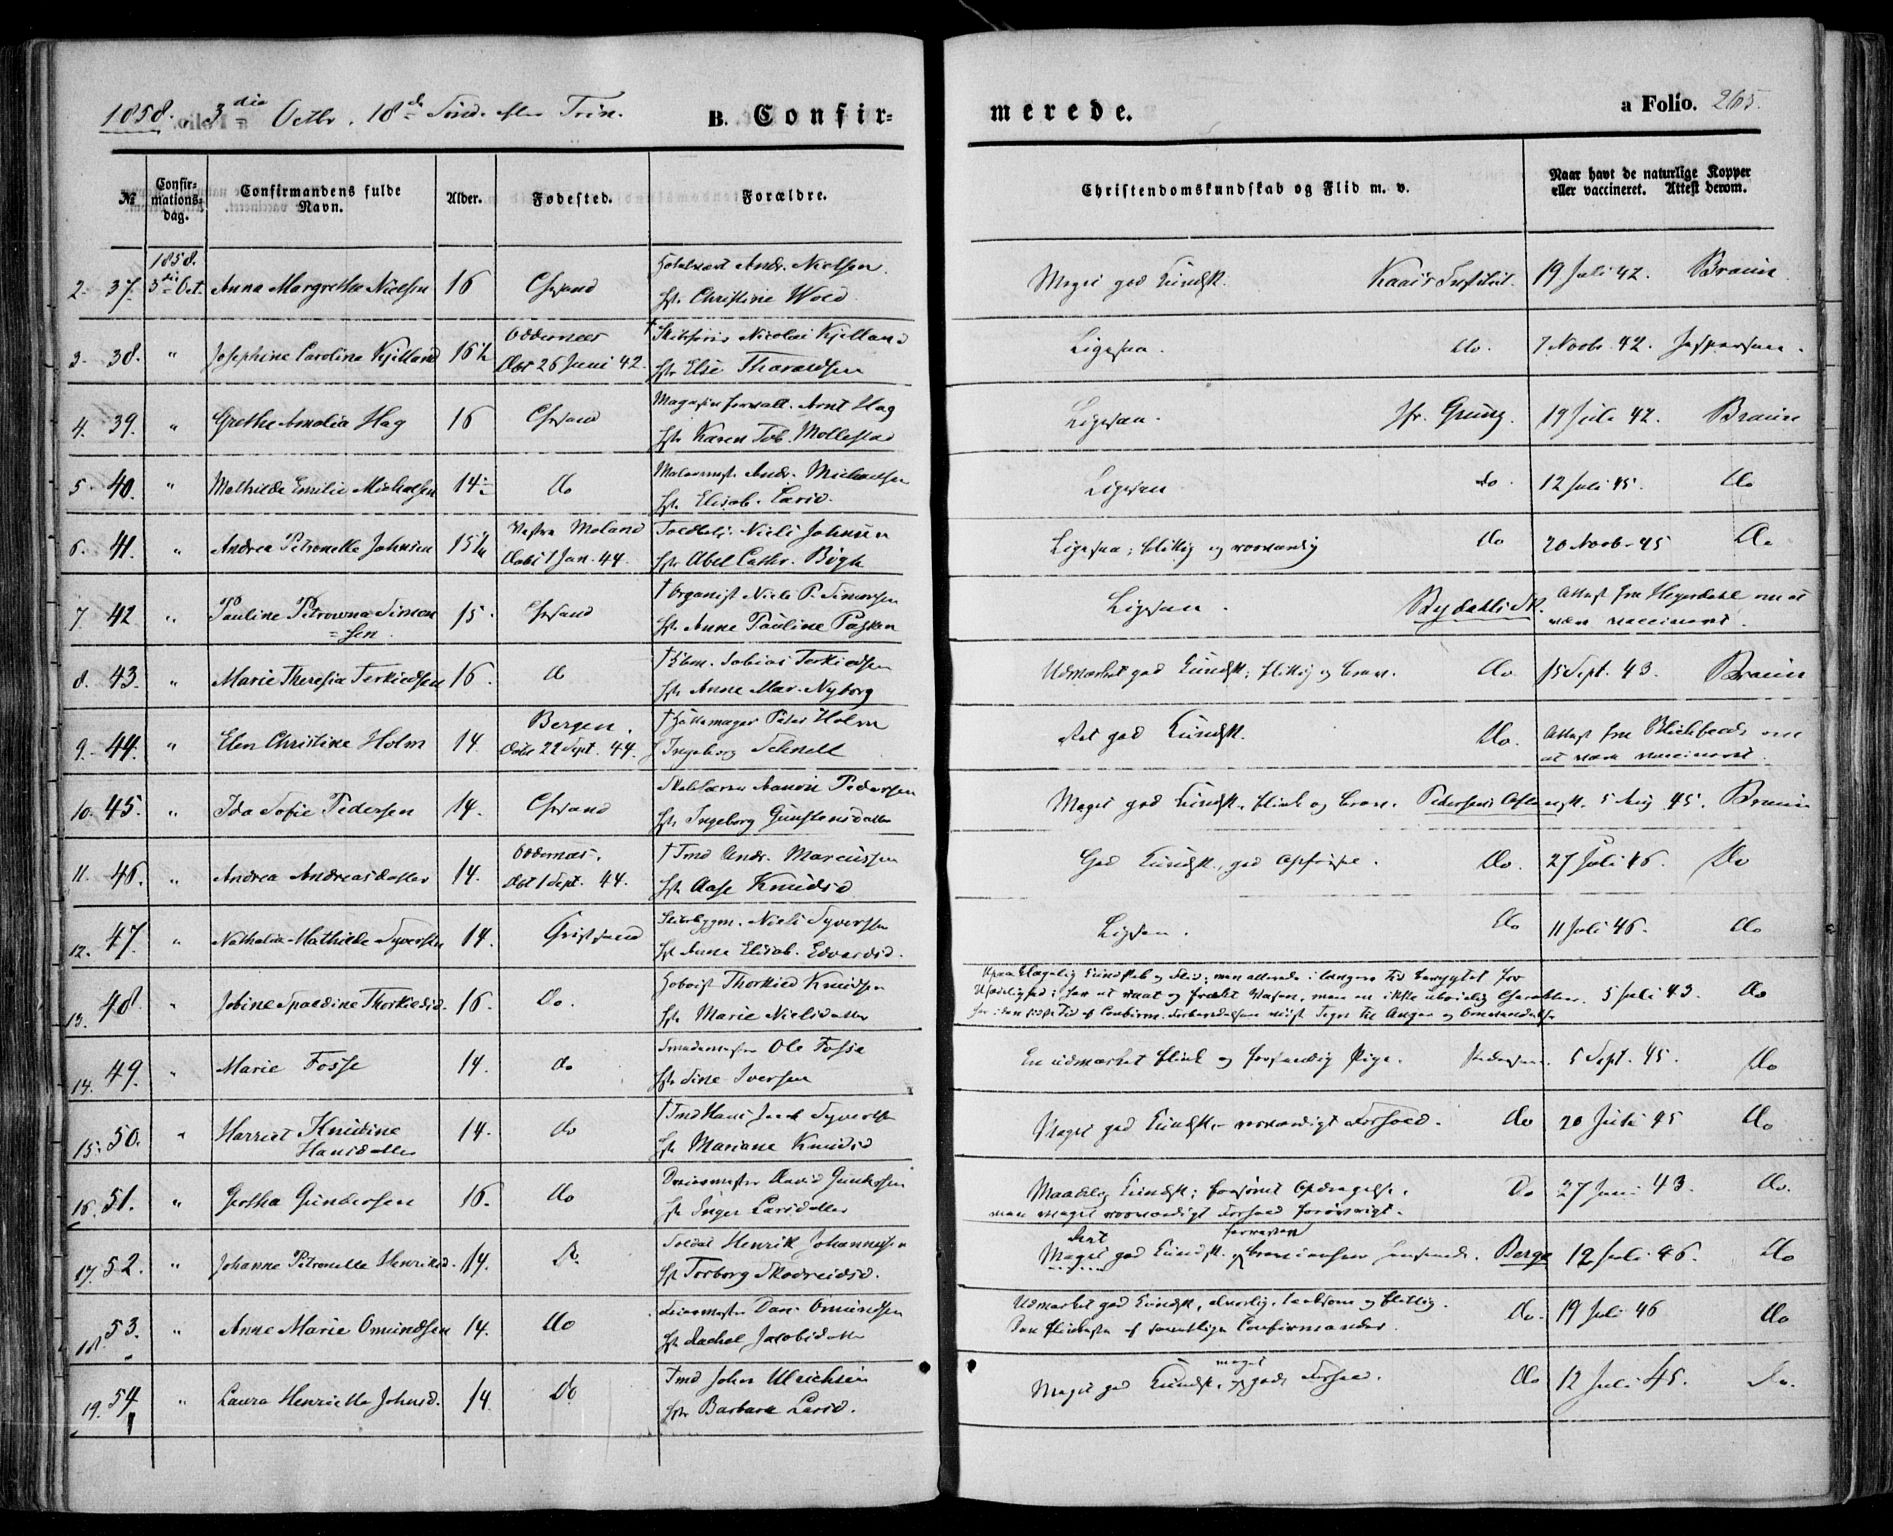 1858. 3die Octbr. 18de Sønd. efter Trin. B. Confir-
merede. a Folio. 265.
№ Confir-mations-dag. Confirmandens fulde Navn. Alder. Fødested. Forældre. Christendomskundskab og Flid m. v. Naar havt de naturlige Kopper eller vaccineret. Attest derom.
1858.
2. 37. 3die Oct. Anna Margrethe Nielsen 16 Chrsand Andr. Nielsen Christine Wold Meget god Kundsk. Institut. 19 Juli 42. Braun
3. 38. " Josephine Caroline Kjelland 16½ Oddernes Døbt 26 Juni 42. † Nicolai Kjelland Else Tharaldsen Ligesaa. do. 7 Novbr. 42. Jespersen.
4. 39. " Grethe Amalia Hag 16 Chrsand Magasinforvalt. Arnt Hag Karen Tob. Mollestad Ligesaa. Fr. Grung. 19 Juli 42. Braun
5. 40. " Mathilde Emilie Michelsen 14½ do Malermest. Andr. Michaelsen Elisab. Larsd. Ligesaa do. 12 Juli 45. do
6. 41. " Andrea Petronelle Johnsen 15¼ Vestre Moland Døbt 1 Jan. 44. Toldbetj. Niels Johnsen Abel Cathr. Bøgh Ligesaa; flittig og do 20 Novb. 45 do
7. 42. " Pauline Petrowna Simon=sen 15. Chrsand † Organist Niels P. Simonsen Anne Pauline Ligesaa. Rydahls Sk. Attest fra Heyerdahl om at være vaccineret.
8. 43. " Marie Theresia Terkieldsen 16. do † Tobias Terkieldsen Anne Mar. Nyborg Udmærket god Kundsk; flittig og brav. do. 15 Sept. 43. Braun
9. 44. " Elen Christine Holm 14. Bergen. Døbt 22 Sept. 44. † Peter Holm Ingeborg Schnell Ret god Kundsk. do. Attest fra om at være vaccineret.
10. 45. " Ida Sofie Pedersen 14. Chrsand Aanon Pedersen Ingeborg Gunstensdatter Meget god Kundsk. flink og brav. Pedersens 5 Aug 45. Braun
11. 46. " Andrea Andreasdatter 14. Oddernes. Døbt 1 Sept. 44. † Tmd Andr. Marcussen Aase Knudsd God Kundsk. god Opførsel. do. 27 Juli 46. do
12. 47. " Nathalia Mathilde Syversen 14. Christsand Skibsbygm. Niels Syversen Anne Elisab. Edvardsd. Ligesaa. do 11 Juli 46. do
13. 48. " Jobine Spaldine Thorkieldsd. 16. do. Thorkild Knudsen Marie Nielsdatter Kundskab og Flid; men allerede i længere Tid berygtet for Usædelighed; og men en ikke Charakter. Tid af Confirm. Forberedelsen Tegn til Anger og Omvendelse 5 Juli 43. do
14. 49. " Marie Fosse 14. do Smedemester Ole Fosse Sine Iversen En udmærket flink og forstandig Pige. Pedersen. 5 Sept. 45. do
15. 50. " Harriet Knudine Hansdatter 14. do † Tmd Hans Jacob Syvertsen Mariane Knudsd Meget god Kundsk. Forhold. do 20 Juli 45 do
16. 51. " Gertha Gundersen 16. do David Gundersen Inger Larsdatter Maadelig Kundsk; forsømt Opdragelse, men meget Forhold forøvrigt. do 27 Juni 43. do.
17. 52. " Johanne Petronelle Henriksd. 14. do Soldat Henrik Johannesen Torborg god Kundsk. Berge 12 Juli 46. do
18. 53. " Anne Marie Omundsen 14. do Dan. Omundsen Rachel Jacobsdatter Udmærket god Kundsk, alvorlig, og flittig. Den flinkeste af samtlige Confirmander. do. 19 Juli 46 do
19. 54. " Laura Henriette Johnsd. 14. do Tmd John Ulrichsen Barbara Larsd. Meget god Kundsk. meget godt Forhold. do 12 Juli 45. do.